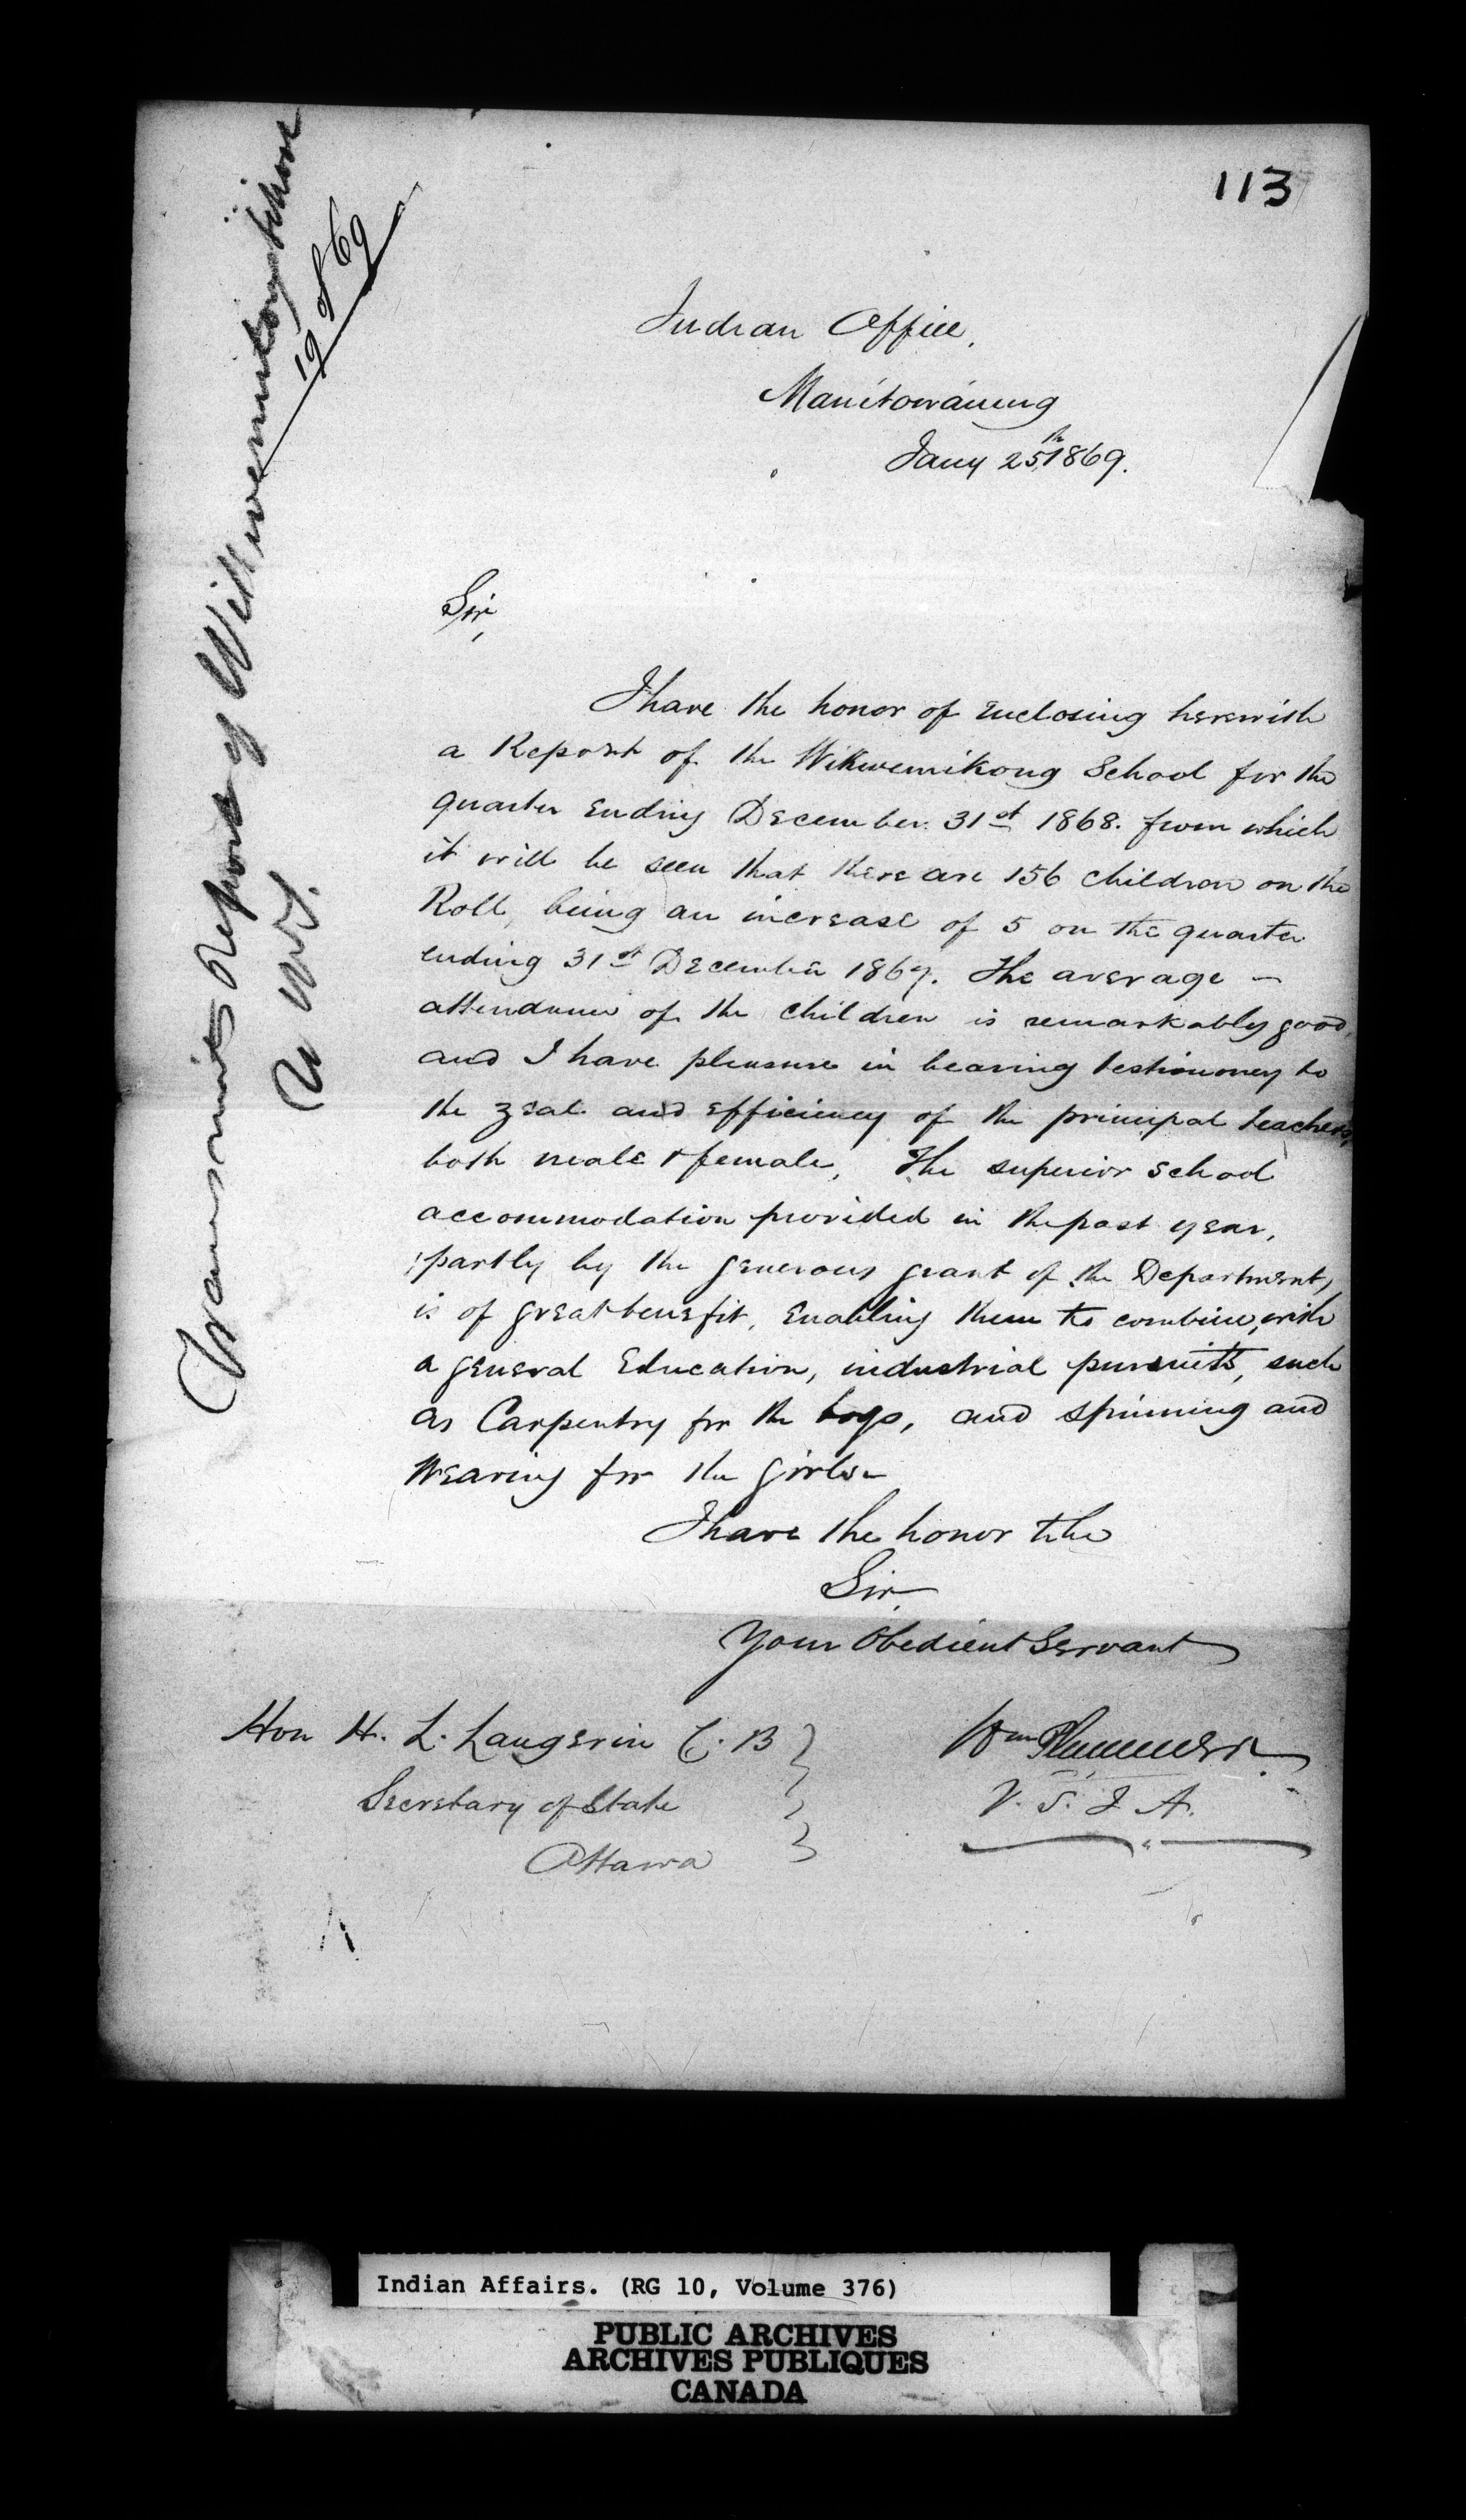 113
Indian Office,
Manitowaning
Jany 25th 1869.
Sir,
I have the honor of enclosing herewith
a Report of the Wikwemikong School for the
quarter ending December 31st 1868. from which
it will be seen that there are 156 children on the
Roll, being an increase of 5 on the quarter
ending 31st December 1867. The average –
attendance of the children is remarkably good,
and I have pleasure in bearing testimoney to
the zeal and efficiency of the principal teachers,
both male & female, The superior school
accommodation provided in the past year,
partly by the generous grant of the Department,
is of great benefit, enabling them to combine, with
a general Education, industrial pursuits, such
as Carpentry for the boys, and spinning and
weaving for the girls –
I have the honor to be
Sir,
Your Obedient Servant
Wm Plummer
V. S. I. A.
Hon H. L. Langevin C. B
Secretary of State
Ottawa
Transmits Report of
19 of 69
Indian Affairs. (RG 10, Volume 376)
PUBLIC ARCHIVES
ARCHIVES PUBLIQUES
CANADA